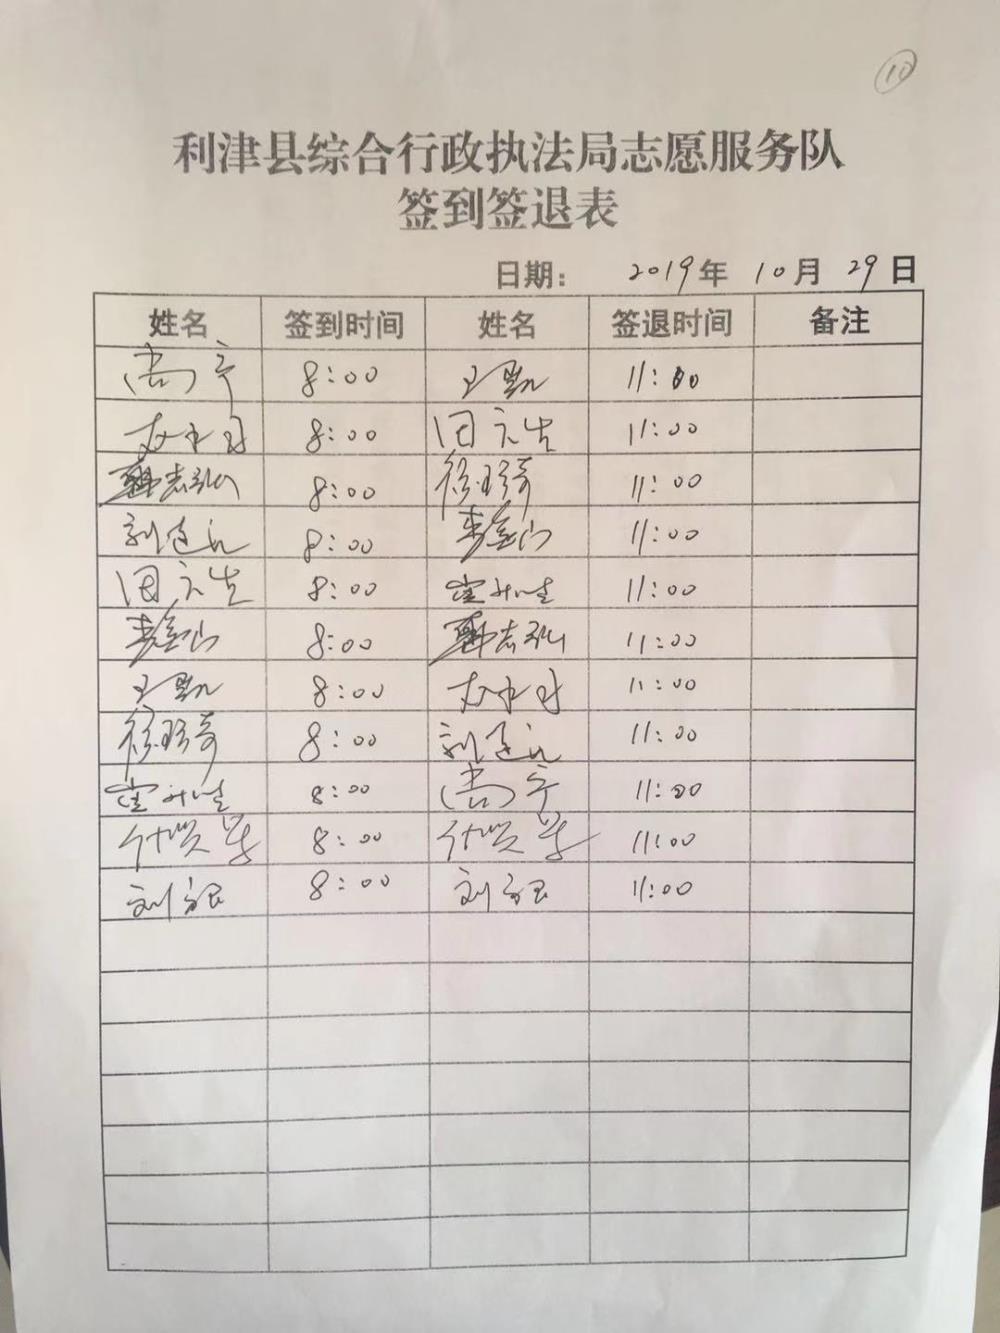 10
利津县综合行政执法局志愿服务队
签到签退表
日期： 2019年 10月 29日
姓名 签到时间 姓名 签退时间 备注
尚宁 8:00 王凯 11:00
8:00 田元生 11:00
韩志弘 8:00 徐珍奇 11:00
刘建永 8:00 李金山 11:00
田元生 8:00 11:00
李金山 8:00 韩志弘 11:00
王凯 8:00 11:00
徐珍奇 8:00 刘建永 11:00
8:00 尚宁 11:00
8:00 11:00
刘 8:00 刘 11:00